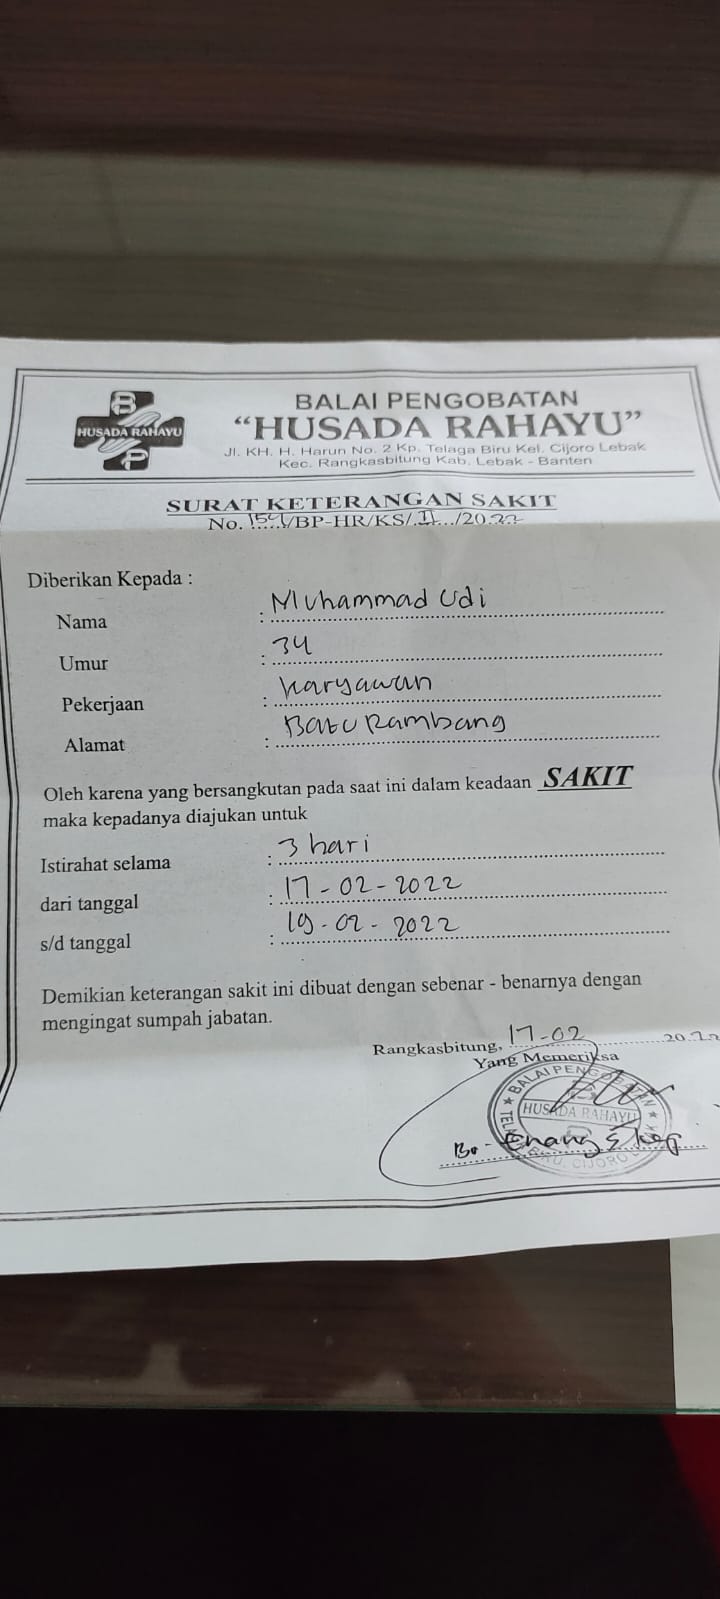 B
HUSADA RAHAYU
P
BALAI PENGOBATAN
“HUSADA RAHAYU”
Jl. KH. H. Harun No. 2 Kp. Telaga Biru Kel. Cijoro Lebak
Kec. Rangkasbitung Kab. Lebak - Banten
SURAT KETERANGAN SAKIT
No. /BP-HR/KS/.II.../2022
Diberikan Kepada :
Nama : Muhammad Udi
Umur : 34
Pekerjaan : Karyawan
Alamat : Batu Rambang
Oleh karena yang bersangkutan pada saat ini dalam keadaan SAKIT
maka kepadanya diajukan untuk
Istirahat selama : 3 hari
dari tanggal : 17-02-2022
s/d tanggal : 19-02-2022
Demikian keterangan sakit ini dibuat dengan sebenar - benarnya dengan
mengingat sumpah jabatan.
Rangkasbitung, 17-02 2022
Yang Memeriksa
BALAI PENGOBATAN
HUSADA RAHAYU
Enang